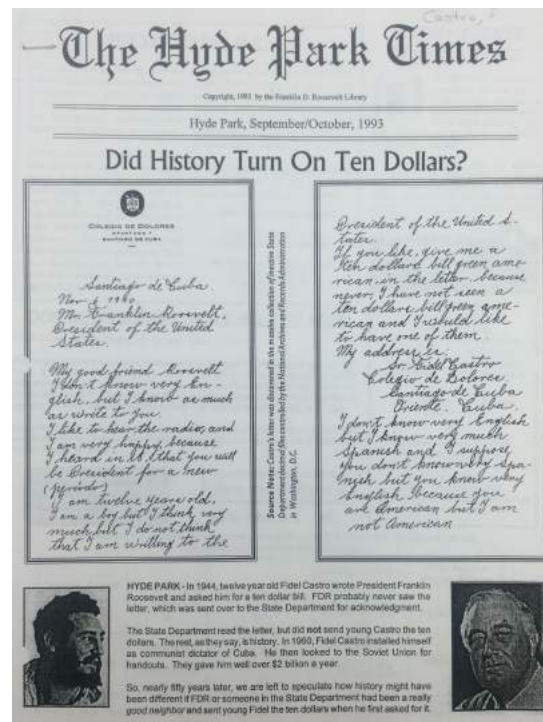 Castro, F
The Hyde Park Times
Copyright, 1993 by the Franklin D. Roosevelt Library
Hyde Park, September/October, 1993
Did History Turn On Ten Dollars?
COLEGIO DE DOLORES
APARTADO 1
SANTIAGO DE CUBA
Santiago de Cuba.
Nov 6 1940
Mr. Franklin Roosvelt,
President of the United
States.
My good friend Roosvelt
I don't know very En-
glish, but I know as much
as write to you.
I like to hear the radio, and
I am very happy, because
I heard in it, that you will
be President for a new
(periodo)
I am twelve years old.
I am a boy but I think very
much but I do not think
that I am writting to the
Source Note: Castro's letter was discovered in the massive collection of inactive State
Department decimal files controlled by the National Archives and Records Administration
in Washington, D.C.
President of the United S-
tates.
If you like, give me a
ten dollars bill green ame-
rican, in the letter, because
never, I have not seen a
ten dollars bill green ame-
rican and I would like
to have one of them.
My address is:
Sr. Fidel Castro
Colegio de Dolores
Santiago de Cuba
Oriente. Cuba.
I don't know very English
but I know very much
Spanish and I suppose
you don't know very Spa-
nish but you know very
English because you
are American but I am
not American
HYDE PARK - In 1944, twelve year old Fidel Castro wrote President Franklin
Roosevelt and asked him for a ten dollar bill. FDR probably never saw the
letter, which was sent over to the State Department for acknowledgment.
The State Department read the letter, but did not send young Castro the ten
dollars. The rest, as they say, is history. In 1960, Fidel Castro installed himself
as communist dictator of Cuba. He then looked to the Soviet Union for
handouts. They gave him well over $2 billion a year.
So, nearly fifty years later, we are left to speculate how history might have
been different if FDR or someone in the State Department had been a really
good neighbor and sent young Fidel the ten dollars when he first asked for it.